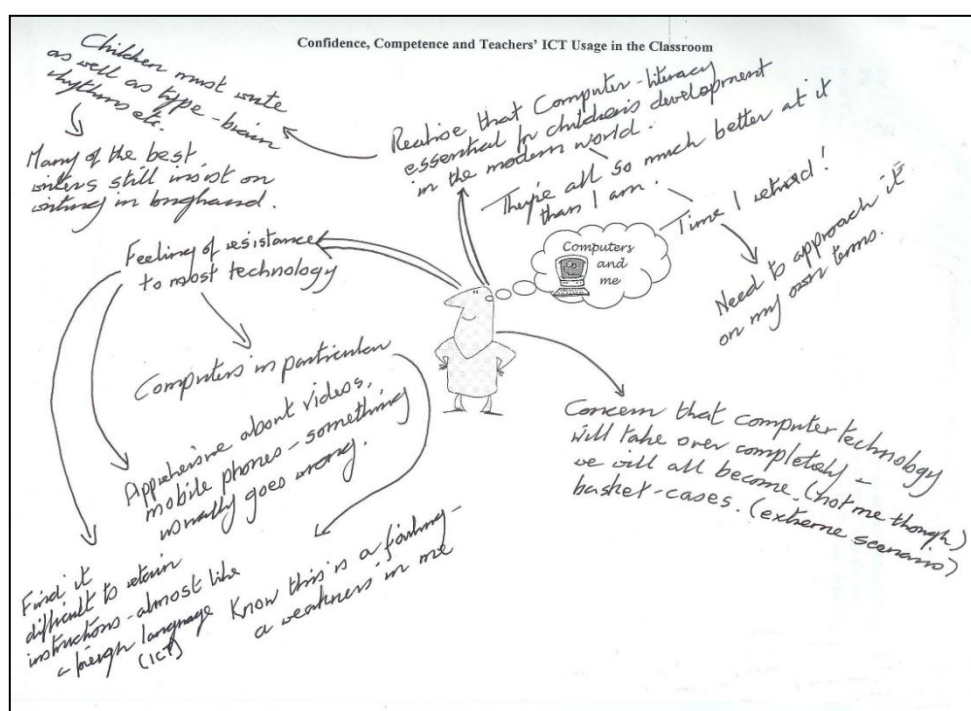 Confidence, Competence and Teachers' ICT Usage in the Classroom
Children must write
as well as type - brain
rhythms etc.
Many of the best
writers still insist on
writing in longhand.
Realise that Computer-literacy
essential for children's development
in the modern world.
They're all so much better at it
than I am.
Time I retired!
Need to approach it
on my own terms.
Computers
and
me
Feeling of resistance
to most technology
Computers in particular
Apprehensive about videos,
mobile phones - something
usually goes wrong.
Find it
difficult to retain
instructions - almost like
a foreign language
(ICT)
Know this is a failing -
a weakness in me
Concern that computer technology
will take over completely -
we will all become (not me though)
basket-cases. (extreme scenario)